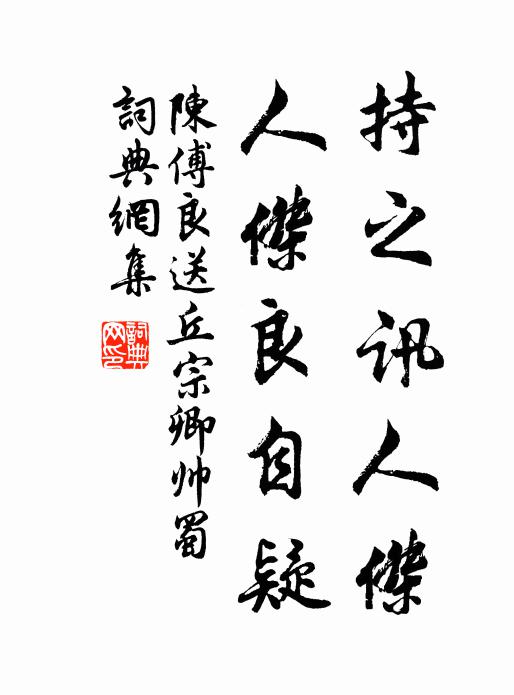 持之訊人傑
人傑良自疑
陳傅良送丘宗卿帅蜀
詞典網集
詞典网印